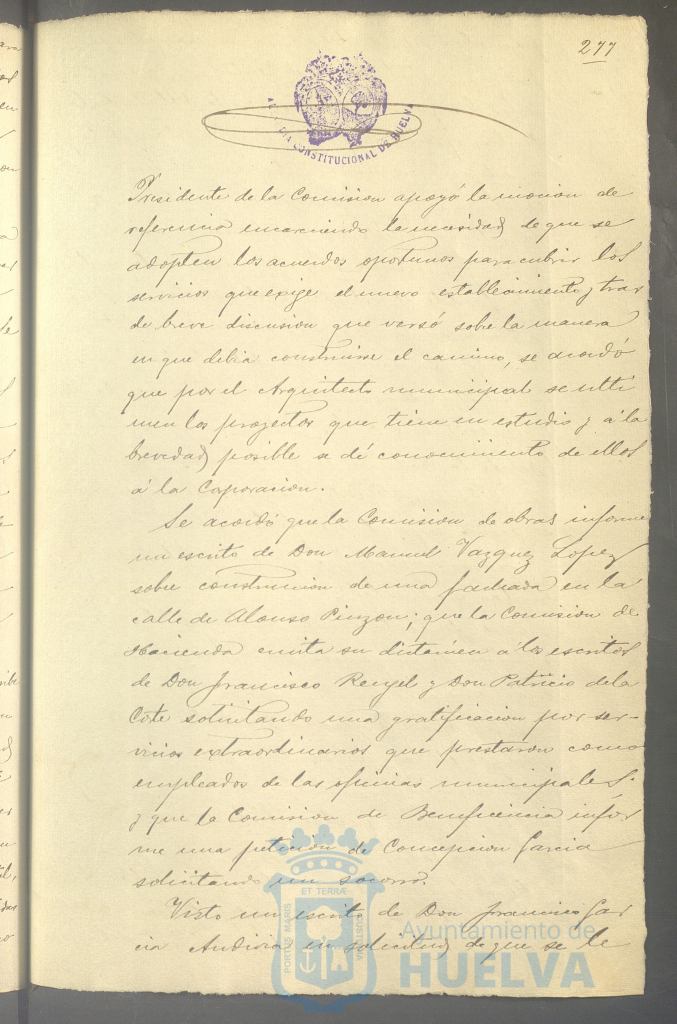 277
ALCALDIA CONSTITUCIONAL DE HUELVA
Presidente de la Comision apoyó la mocion de
referencia encareciendo la necesidad de que se
adopten los acuerdos oportunos para cubrir los
servicios que exige el nuevo establecimiento y tras
de breve discusion que versó sobre la manera
en que debia construirse el camino, se acordó
que por el Arquitecto municipal se ulti
men los proyectos que tiene en estudio y á la
brevedad posible se dé conocimiento de ellos
á la Corporacion.
Se acordó que la Comision de obras informe
un escrito de Don Manuel Vazquez Lopez
sobre construccion de una fachada en la
calle de Alonso Pinzon; que la Comision de
Hacienda emita su dictámen á los escritos
de Don Francisco Rengel y Don Patricio de la
Corte solicitando una gratificacion por ser-
vicios extraordinarios que prestaron como
empleados de las oficinas municipales.
y que la Comision de Beneficencia infor
me una peticion de Concepcion Garcia
solicitando un socorro.
Visto un escrito de Don Francisco Gar
cia en solicitud de que se le
PORTUS MARIS ET TERRÆ CUSTODIA
Ayuntamiento de
HUELVA